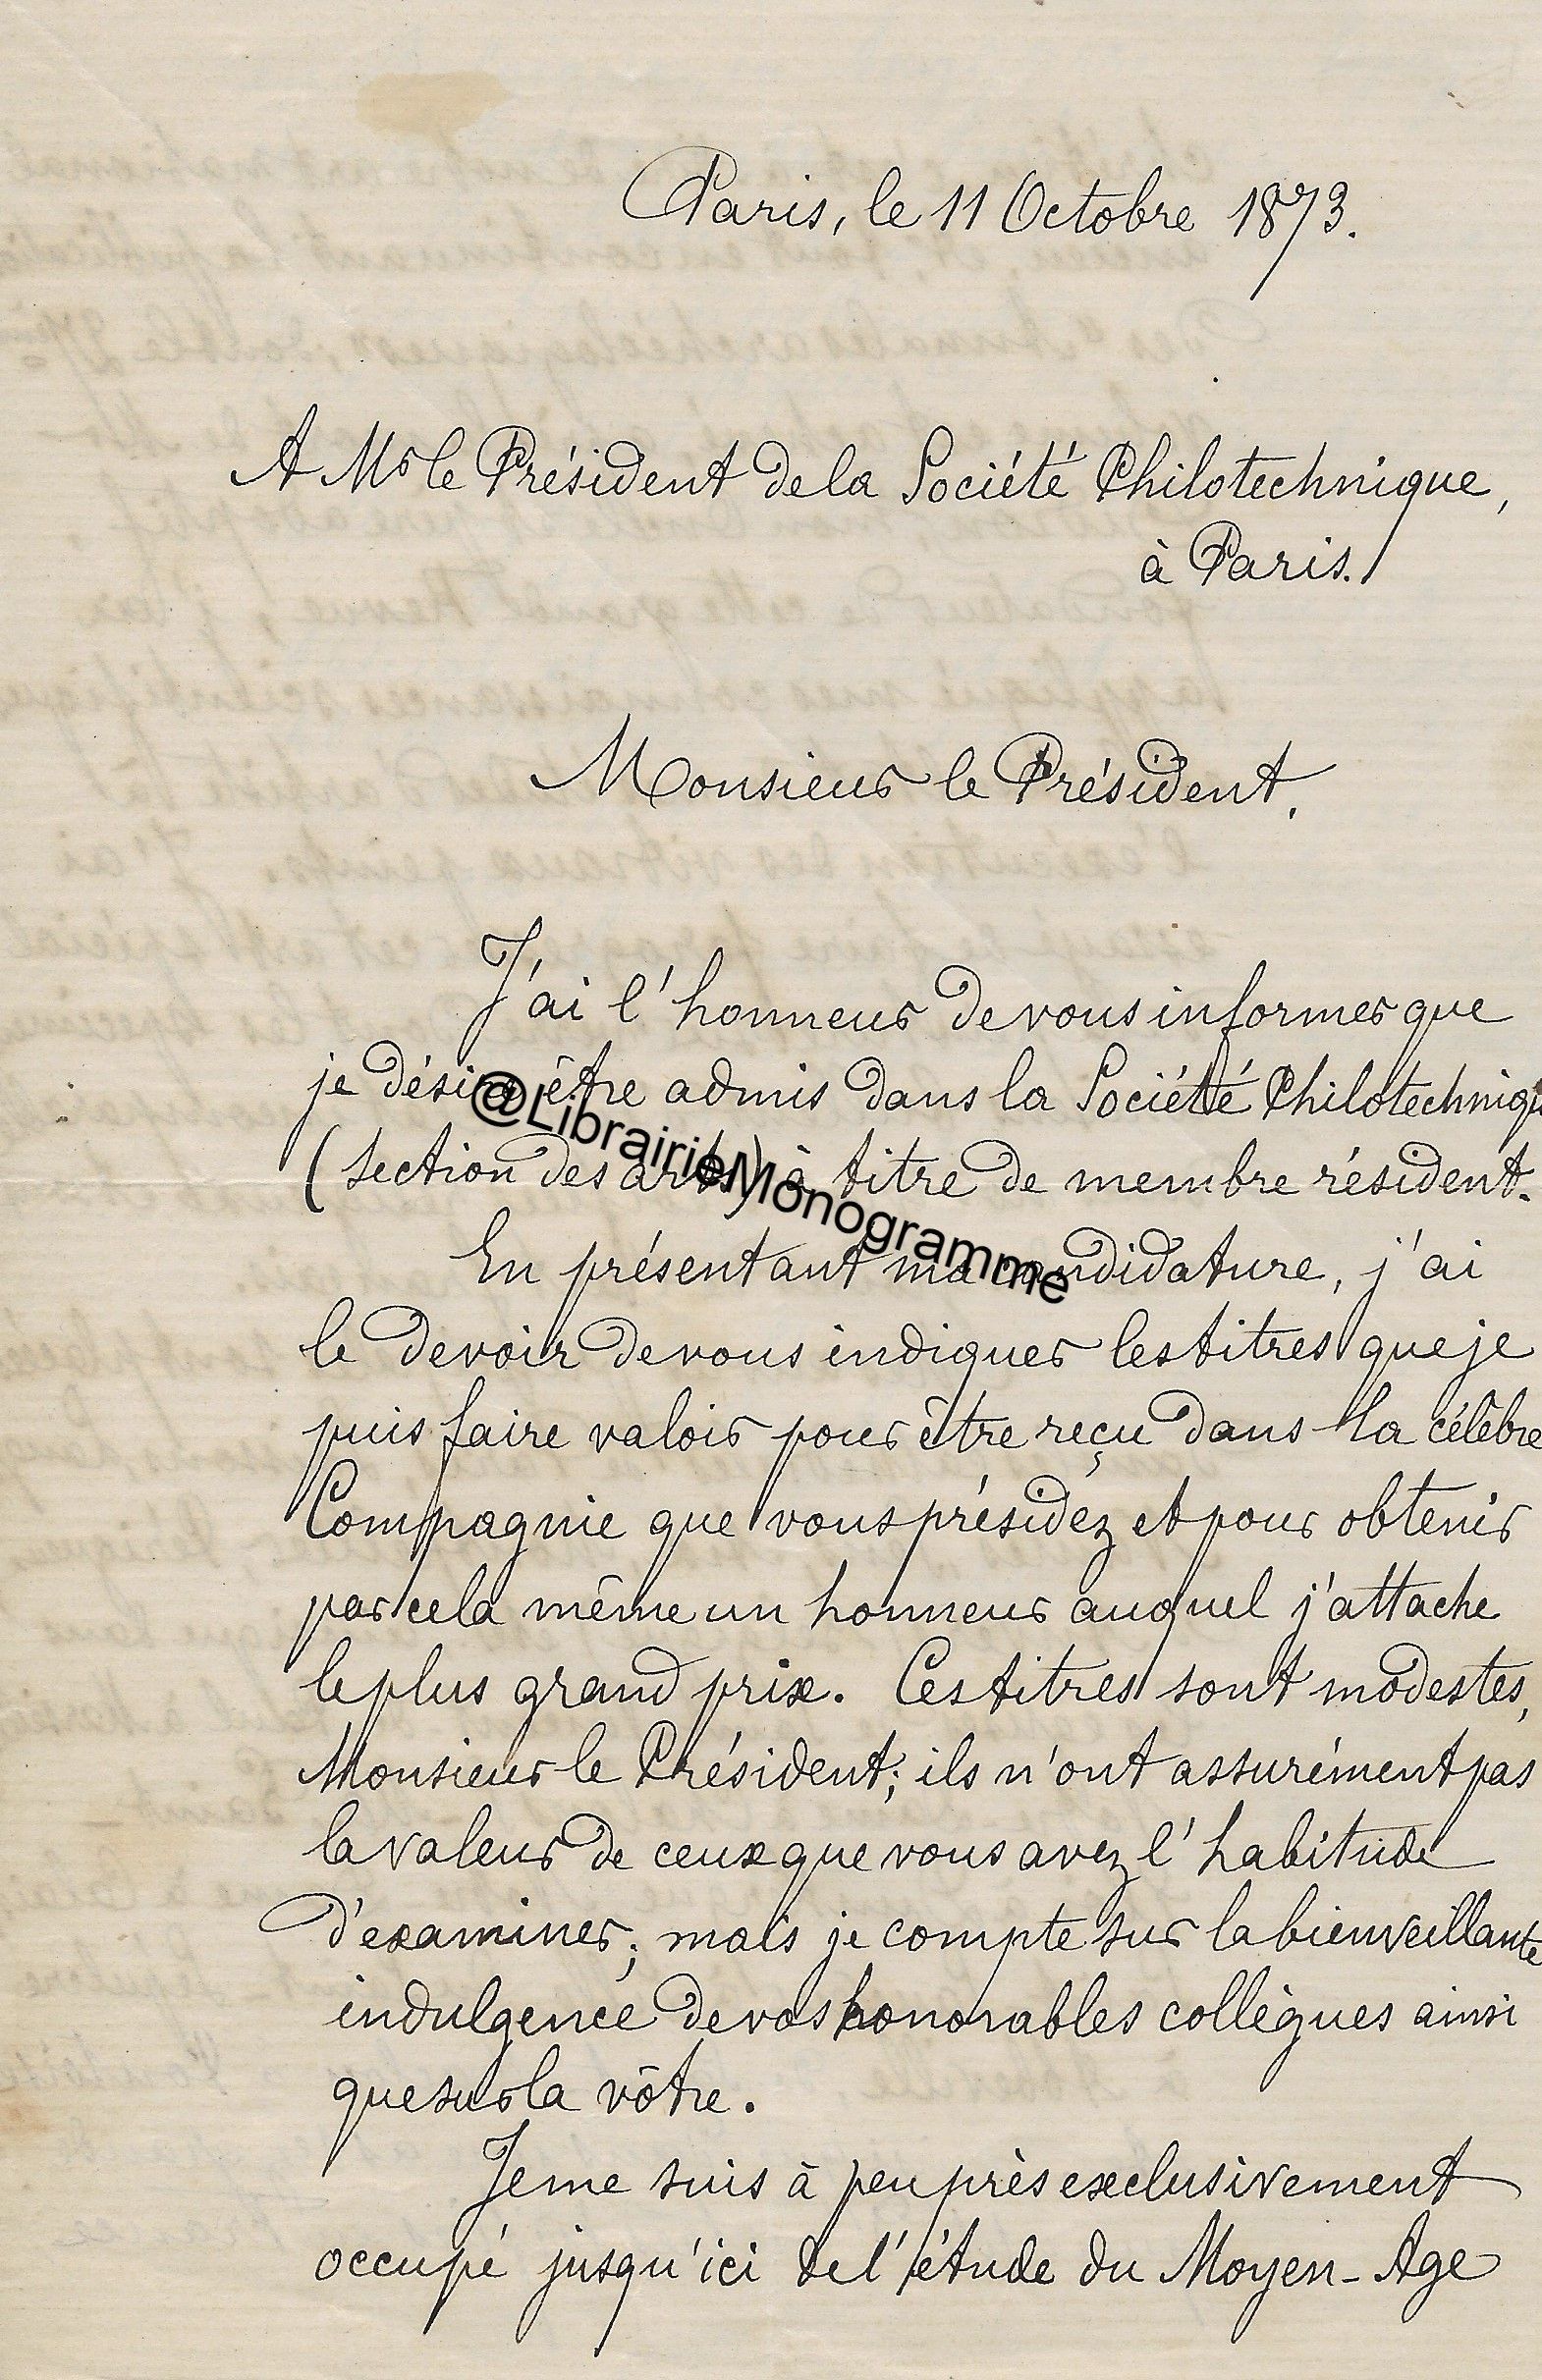 Paris, le 11 Octobre 1873.
A Mr le Président de la Société Philotechnique,
à Paris.
Monsieur le Président,
J'ai l'honneur de vous informer que
je désire être admis dans la Société Philotechniqu
(section des arts) à titre de membre résident.
En présentant ma candidature, j'ai
le devoir de vous indiquer les titres que je
puis faire valoir pour être reçu dans la célèbre
Compagnie que vous présidez et pour obtenir
par cela même un honneur auquel j'attache
le plus grand prix. Ces titres sont modestes,
Monsieur le Président; ils n'ont assurément pas
la valeur de ceux que vous avez l'habitude
d'examiner; mais je compte sur la bienveillante
indulgence de vos honorables collègues ainsi
que sur la vôtre.
Je me suis à peu près exclusivement
occupé jusqu'ici de l'étude du Moyen-Age
@LibrairieMonogramme